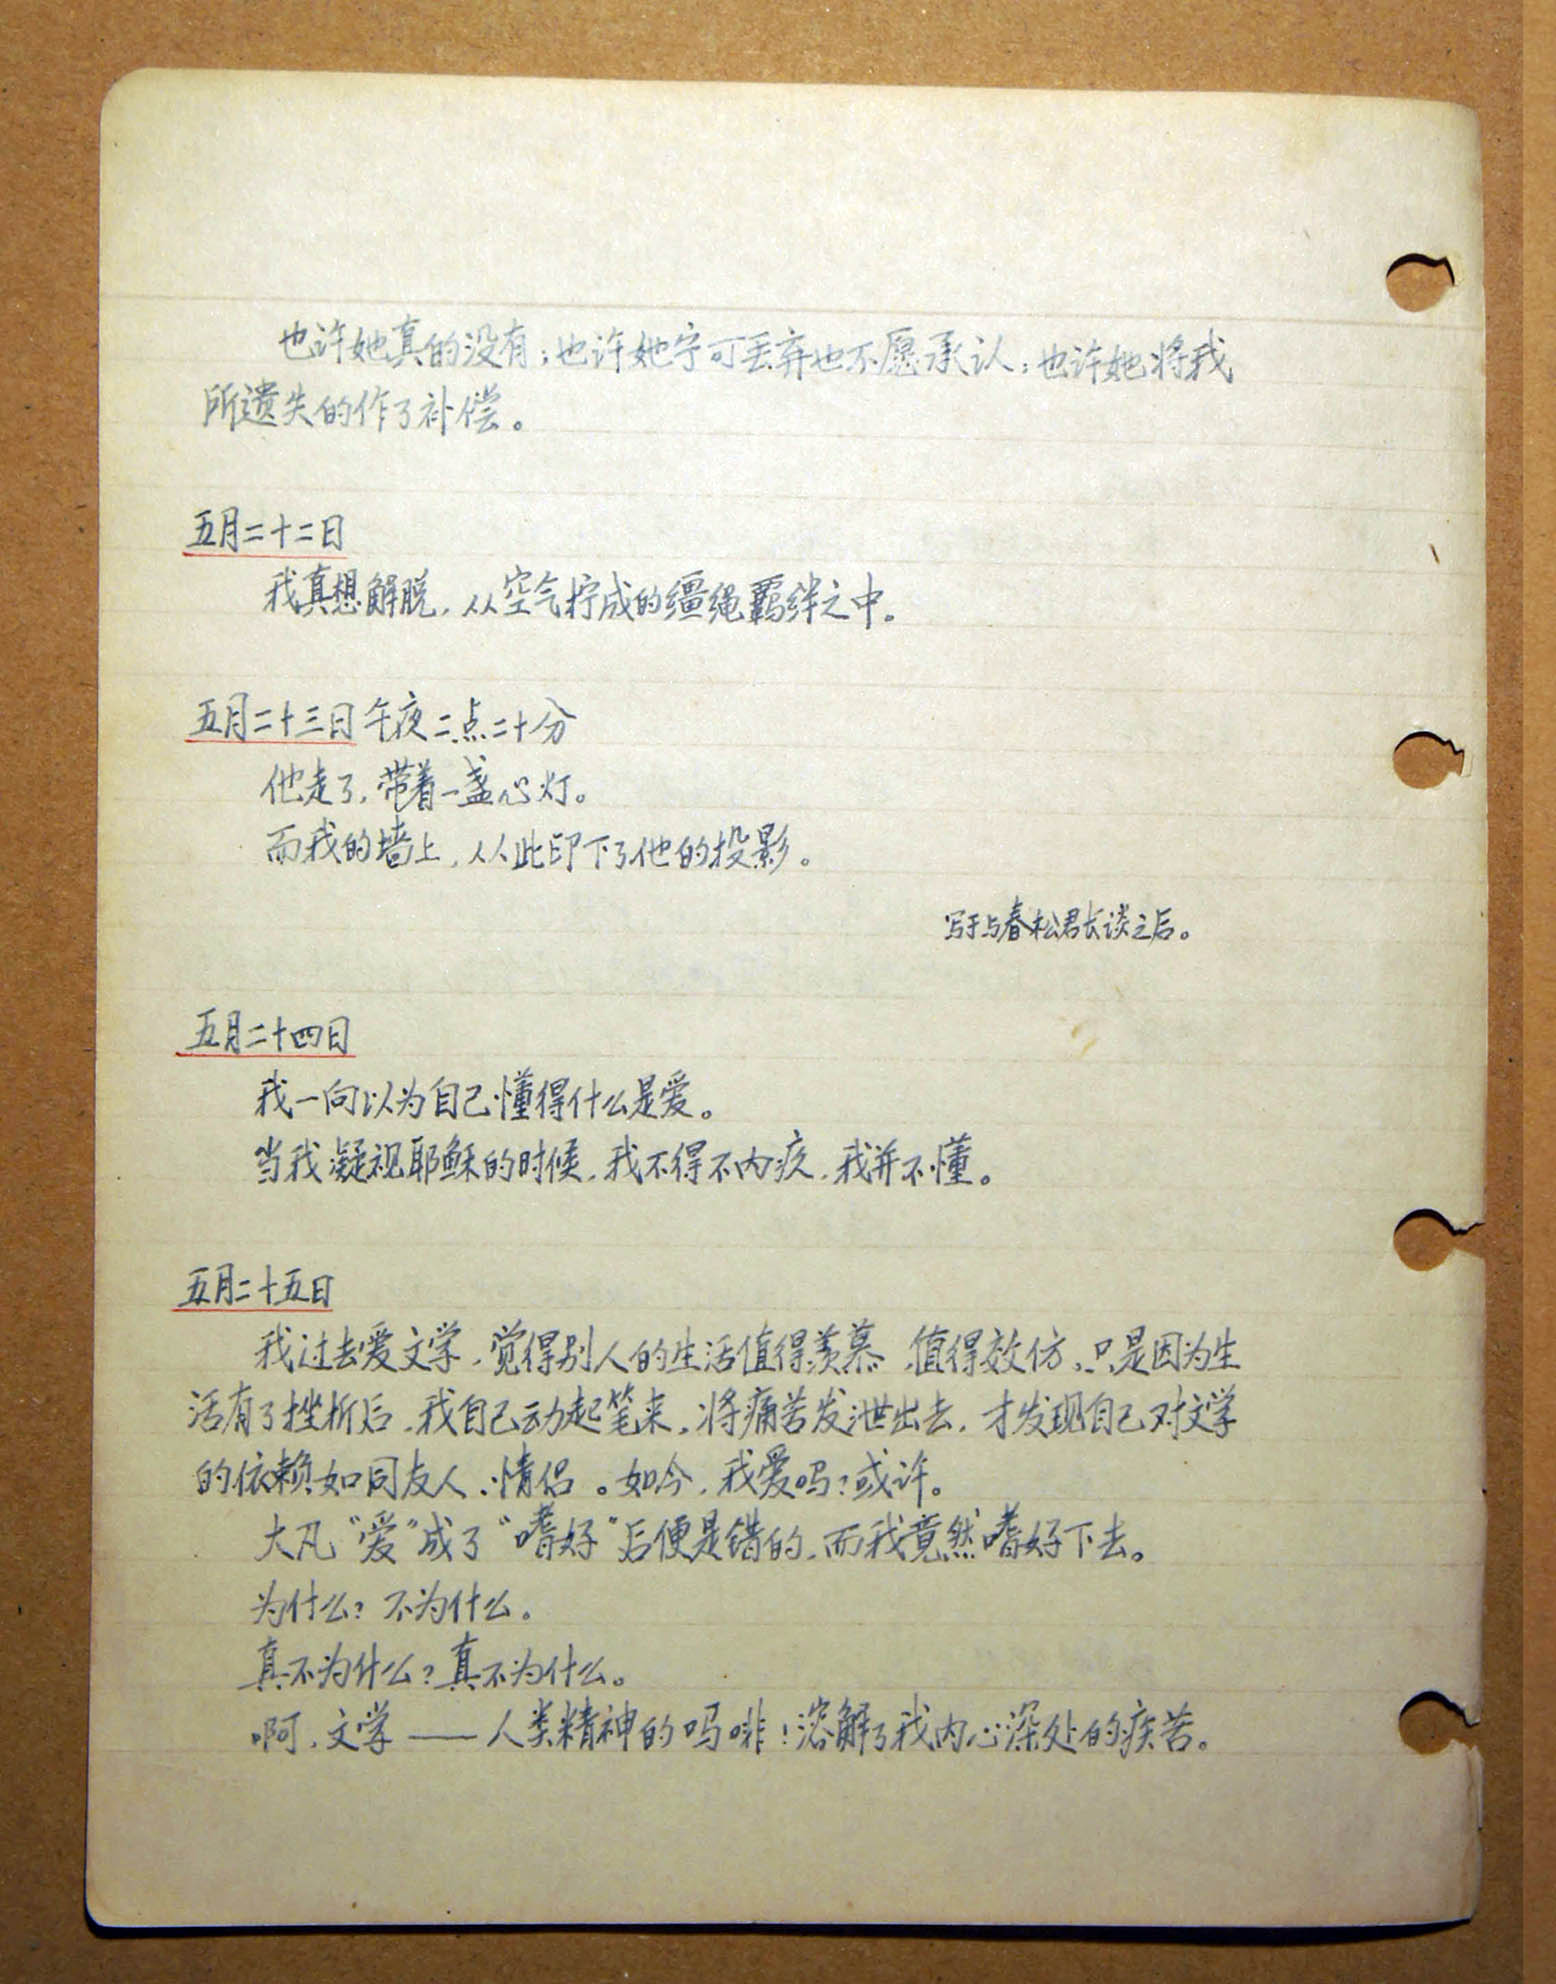 也许她真的没有；也许她宁可丢弃也不愿承认；也许她将我
所遗失的作了补偿。
五月二十二日
我真想解脱，从空气拧成的缰绳羁绊之中。
五月二十三日午夜二点二十分
他走了，带着一盏心灯。
而我的墙上，从此印下了他的投影。
写于与春松君长谈之后。
五月二十四日
我一向以为自己懂得什么是爱。
当我凝视耶稣的时候，我不得不内疚，我并不懂。
五月二十五日
我过去爱文学，觉得别人的生活值得羡慕，值得效仿，只是因为生
活有了挫折后，我自己动起笔来，将痛苦发泄出去，才发现自己对文学
的依赖如同友人、情侣。如今，我爱吗？或许。
大凡“爱”成了“嗜好”后便是错的，而我竟然嗜好下去。
为什么？不为什么。
真不为什么？真不为什么。
啊，文学——人类精神的吗啡！溶解了我内心深处的疾苦。